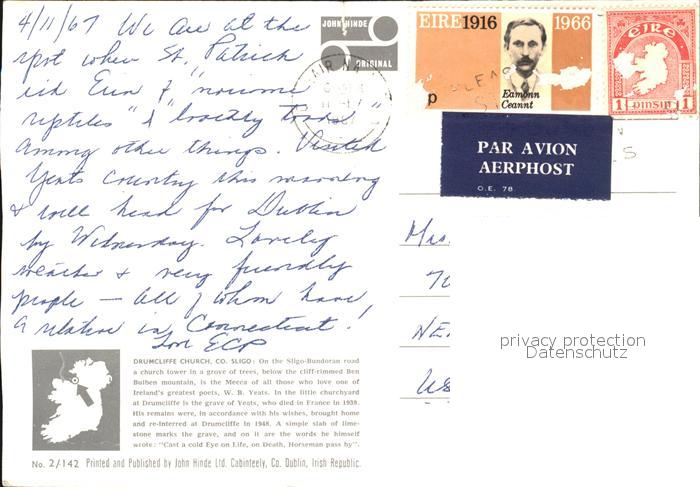 4/11/67 We are at the
spot where St. Patrick
rid Erin of "noisome
reptiles" & "loathly toads"
among other things. Visited
Yeats Country this morning
& will head for Dublin
by Wednesday. Lovely
weather & very friendly
people — all of whom have
a relative in Connecticut!
ECP
JOHN HINDE
ORIGINAL
EIRE 1916 1966
p
Eamonn
Ceannt
EIRE
1 PINSIN 1
PAR AVION
AERPHOST
O.E. 78.
Mrs.
US
privacy protection
Datenschutz
DRUMCLIFFE CHURCH, CO. SLIGO: On the Sligo-Bundoran road
a church tower in a grove of trees, below the cliff-rimmed Ben
Bulben mountain, is the Mecca of all those who love one of
Ireland's greatest poets, W. B. Yeats. In the little churchyard
at Drumcliffe is the grave of Yeats, who died in France in 1939.
His remains were, in accordance with his wishes, brought home
and re-interred at Drumcliffe in 1948. A simple slab of lime-
stone marks the grave, and on it are the words he himself
wrote: "Cast a cold Eye on Life, on Death, Horseman pass by".
No. 2/142 Printed and Published by John Hinde Ltd. Cabinteely, Co. Dublin, Irish Republic.